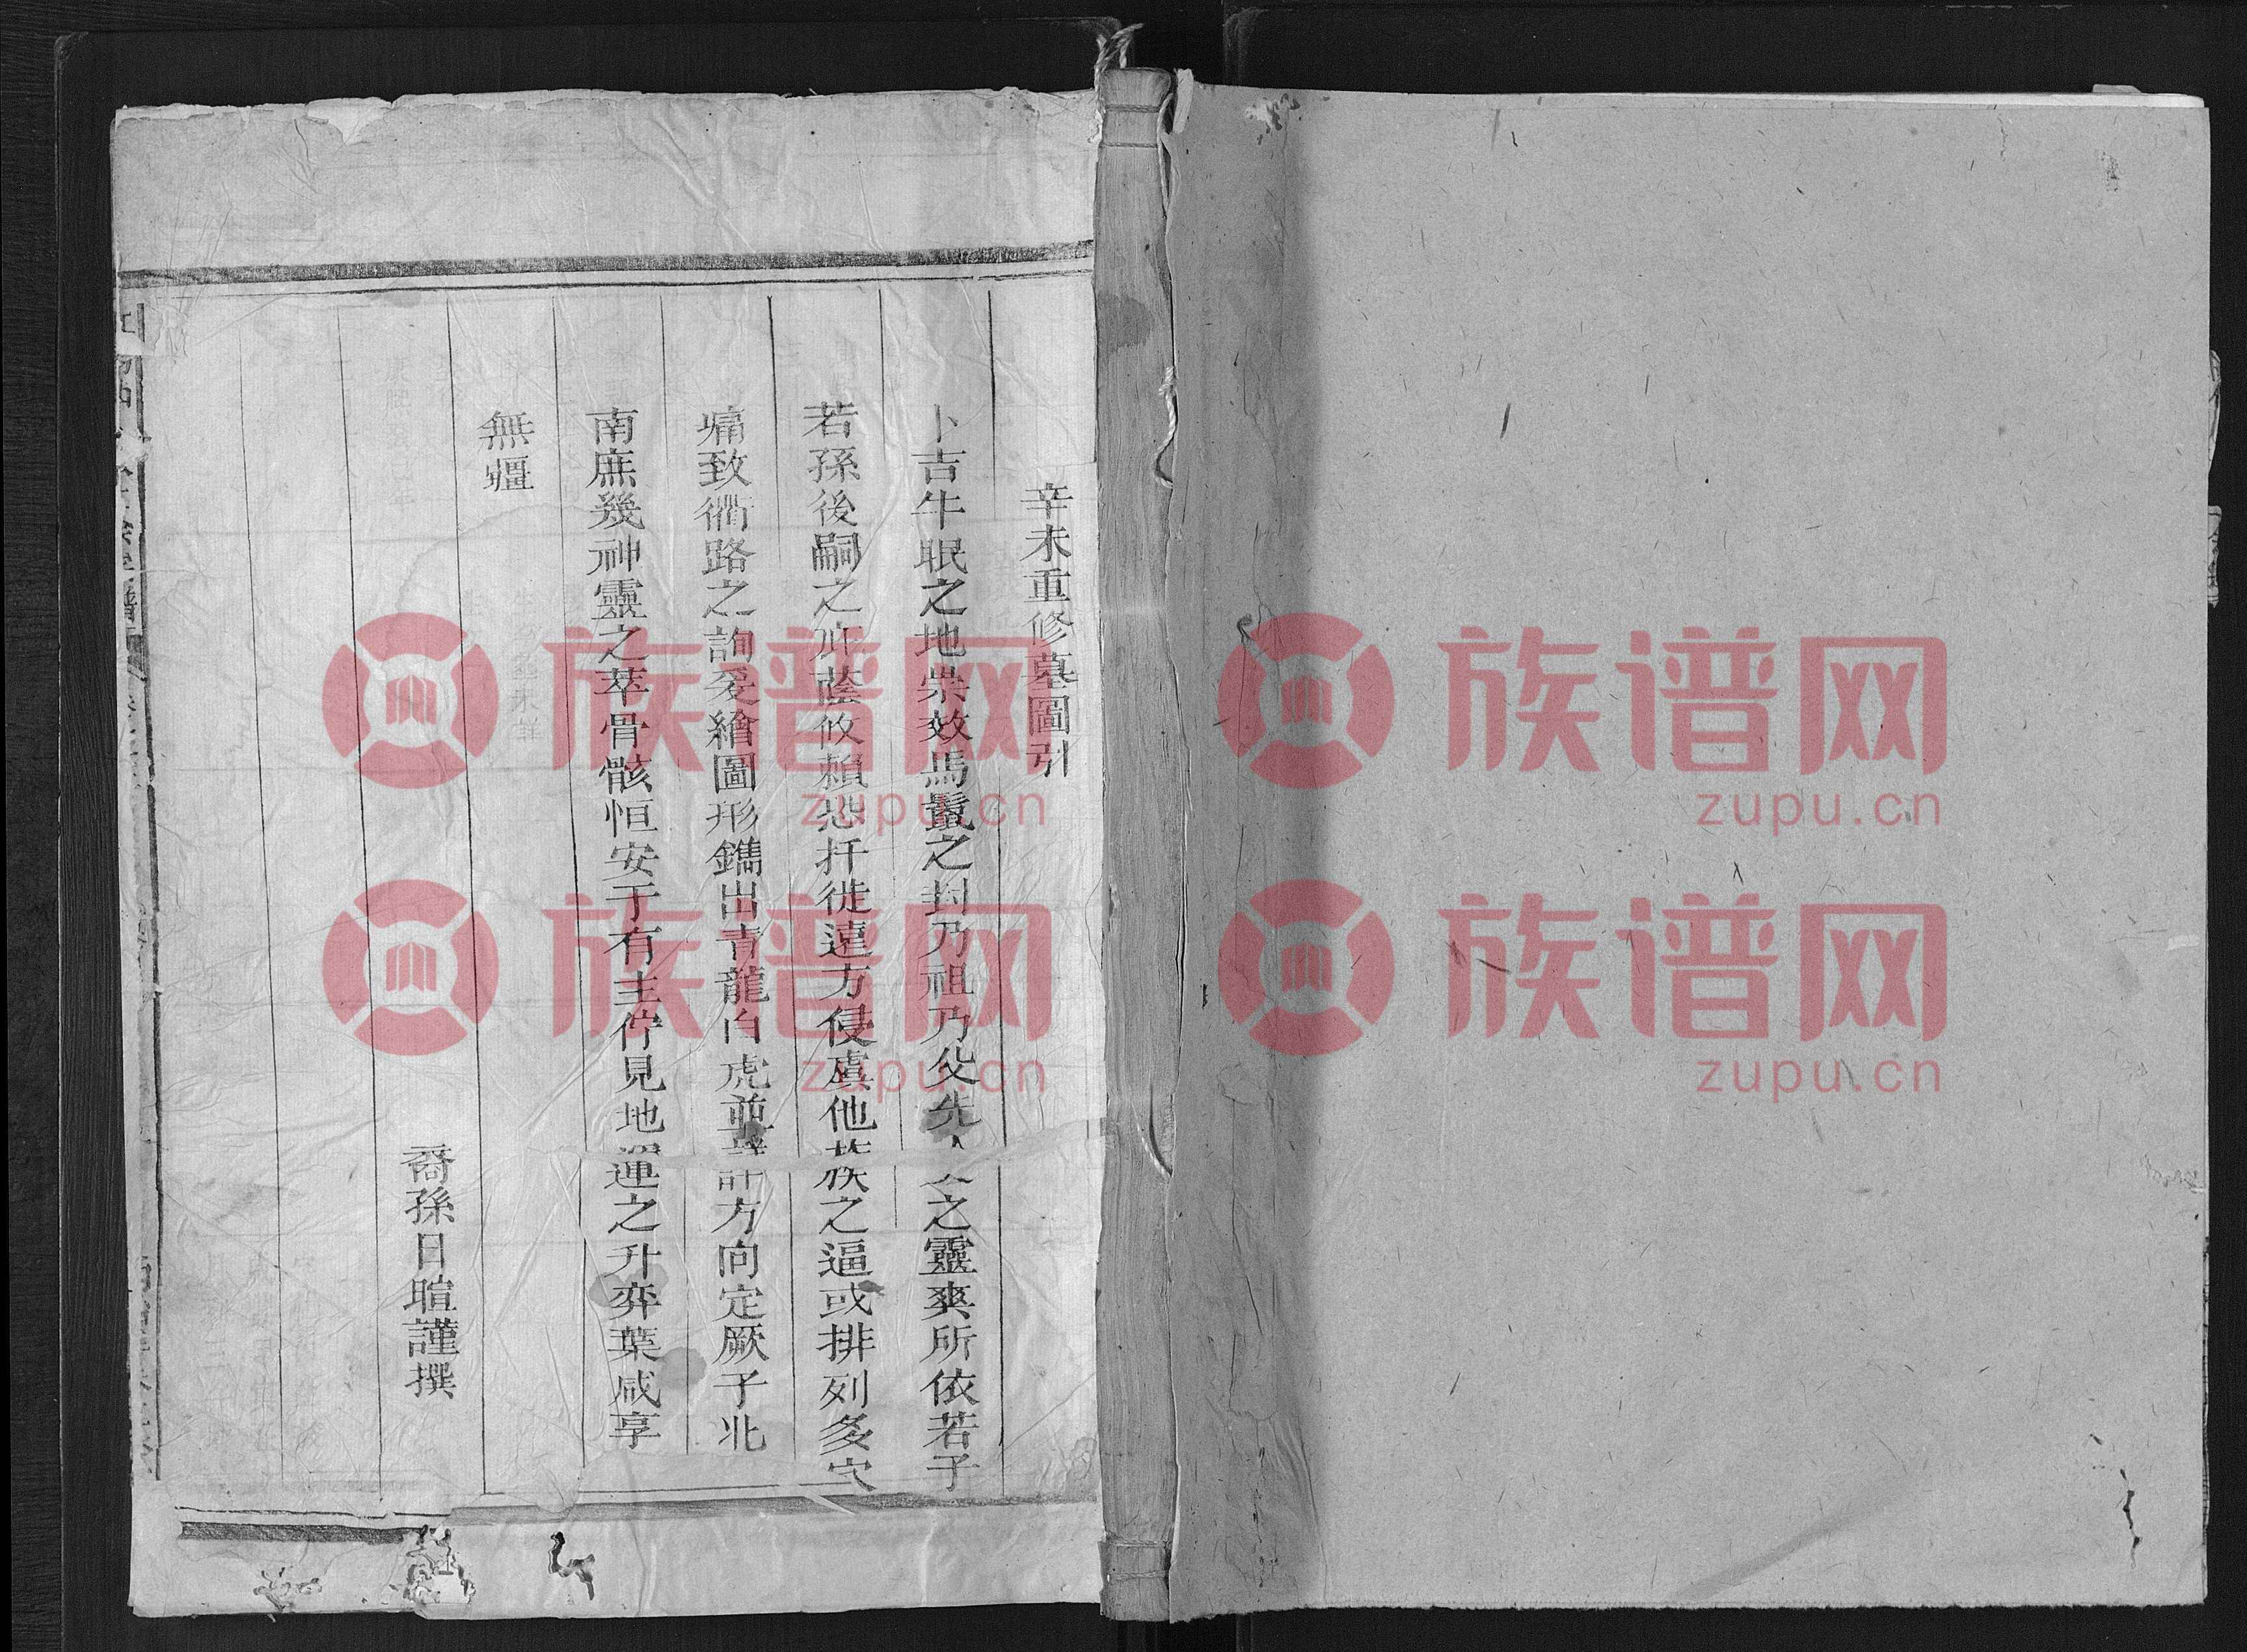 辛未重修墓圖引
卜吉牛眠之地崇效馬鬛之封乃祖乃父先人之靈爽所依若子
若孫後嗣之庥蔭攸賴恐扦徙遠方侵虞他族之逼或排列多穴
痛致衢路之詢爰繪圖形鐫出青龍白虎並詳方向定厥子北
南庶幾神靈之萃骨骸恒安于有主佇見地運之升弈葉咸享
無疆
裔孫日暄謹撰
族谱网
zupu.cn
族谱网
zupu.cn
族谱网
zupu.cn
族谱网
zupu.cn